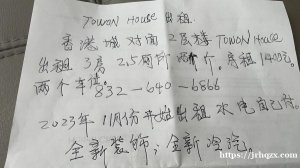 TOWON HOUSE 出租
香港城对面 2层楼 TOWON HOUSE
出租 3房 2.5厕所 两个厅。月租1400元。
两个车位。832-640-6866
2023年11月份开始出租 水电自己付。
全新装饰；全新冷气。
https://jrhqzx.com